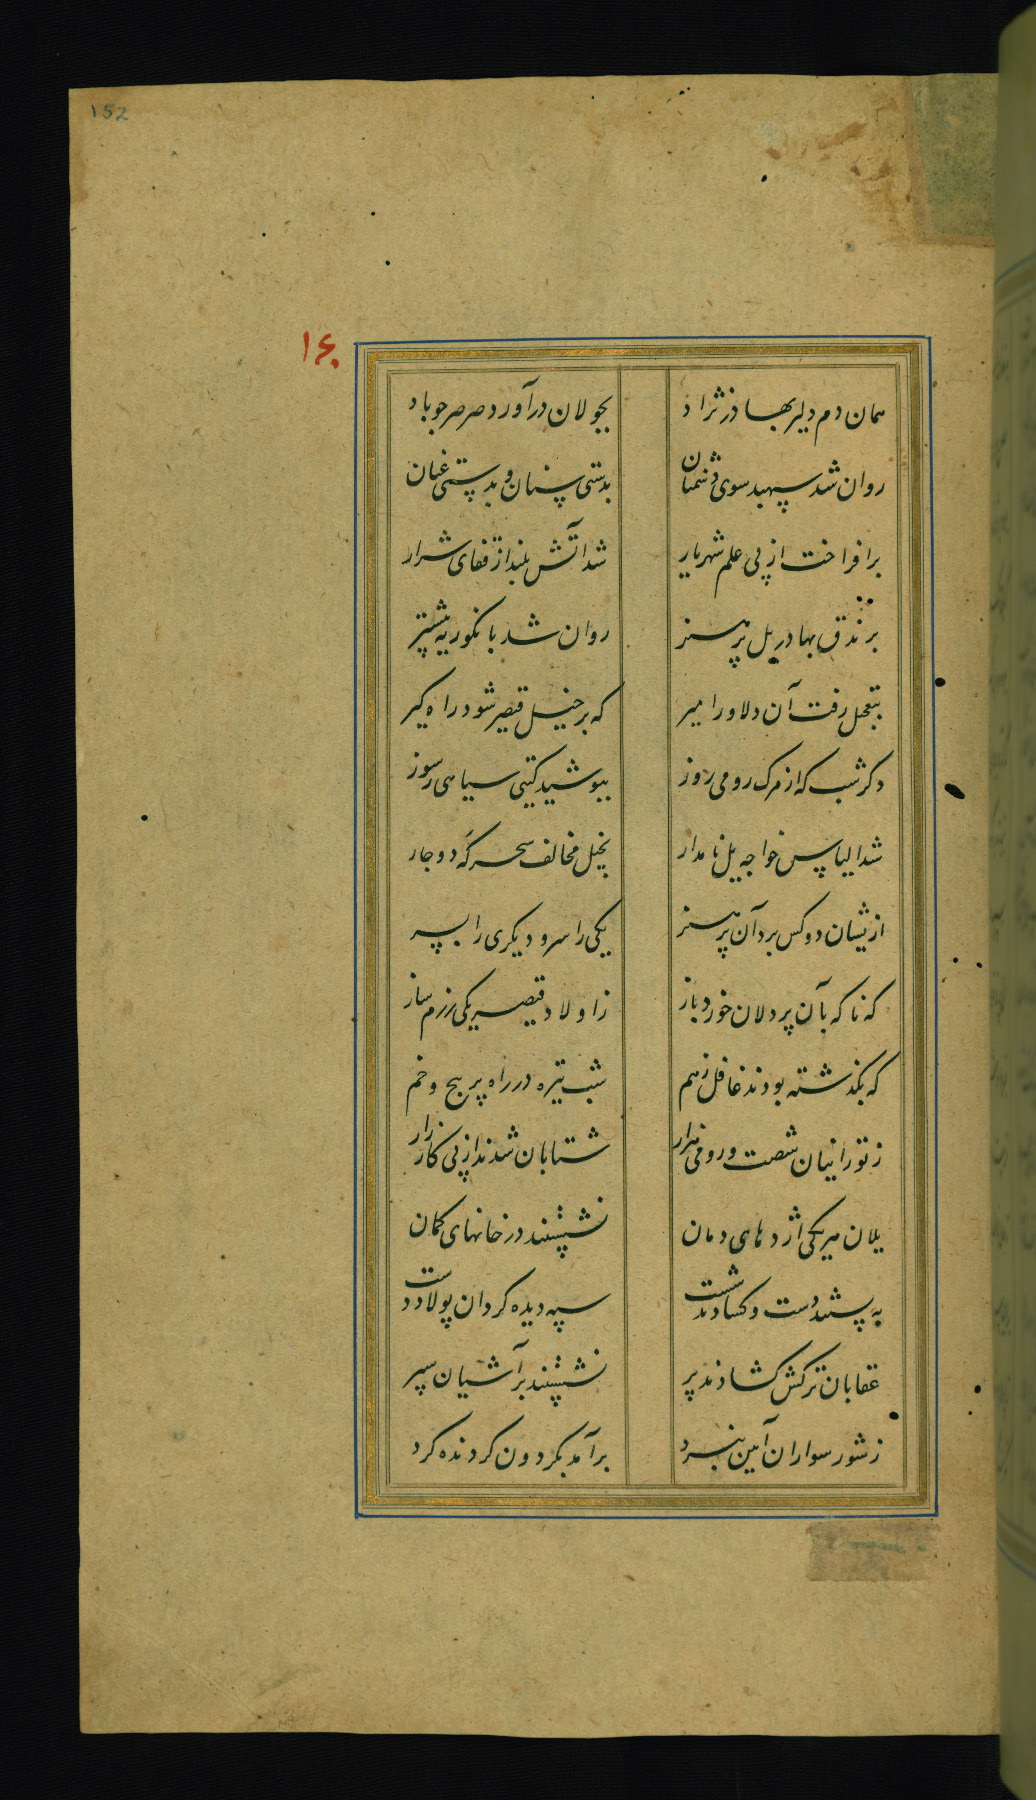 152
۱۶۰
همان دم دلیر بهادر نژاد بجولان درآورد صرصر چو باد
روان شد سپهبد سوی دشمنان بدستی سنان و بدستی عنان
برافراخت از پی علم شهریار شد آتش بلند از قفای شرار
برندق بهادر یل پرهنر روان شد بانکوریه پیشتر
بتعجیل رفت آن دلاور امیر که بر خیل قیصر شود راه کیر
دکر شب که از مرک رومی روز بپوشید کیتی سیاهی سوز
شد الیاس خواجه یل نامدار بخیل مخالف سحرکه دوچار
ازیشان دو کس برد آن پرهنر یکی را سر و دیکری را بسر
که ناکه بآن پردلان خورد باز ز اولاد قیصر یکی رزم ساز
که بکذشته بودند غافل ز هم شب تیره در راه پر پیچ و خم
ز تورانیان شصت و رومی هزار شتابان شدند از پی کارزار
یلان هر یکی اژدهای دمان نشستند در خانهای کمان
به بستند دست و کشادند شست سپه دیده کردان پولاد دست
عقابان ترکش کشادند پر نشستند بر آشیان سپر
ز شور سواران آیین نبرد برآمد بکردون کردنده کرد